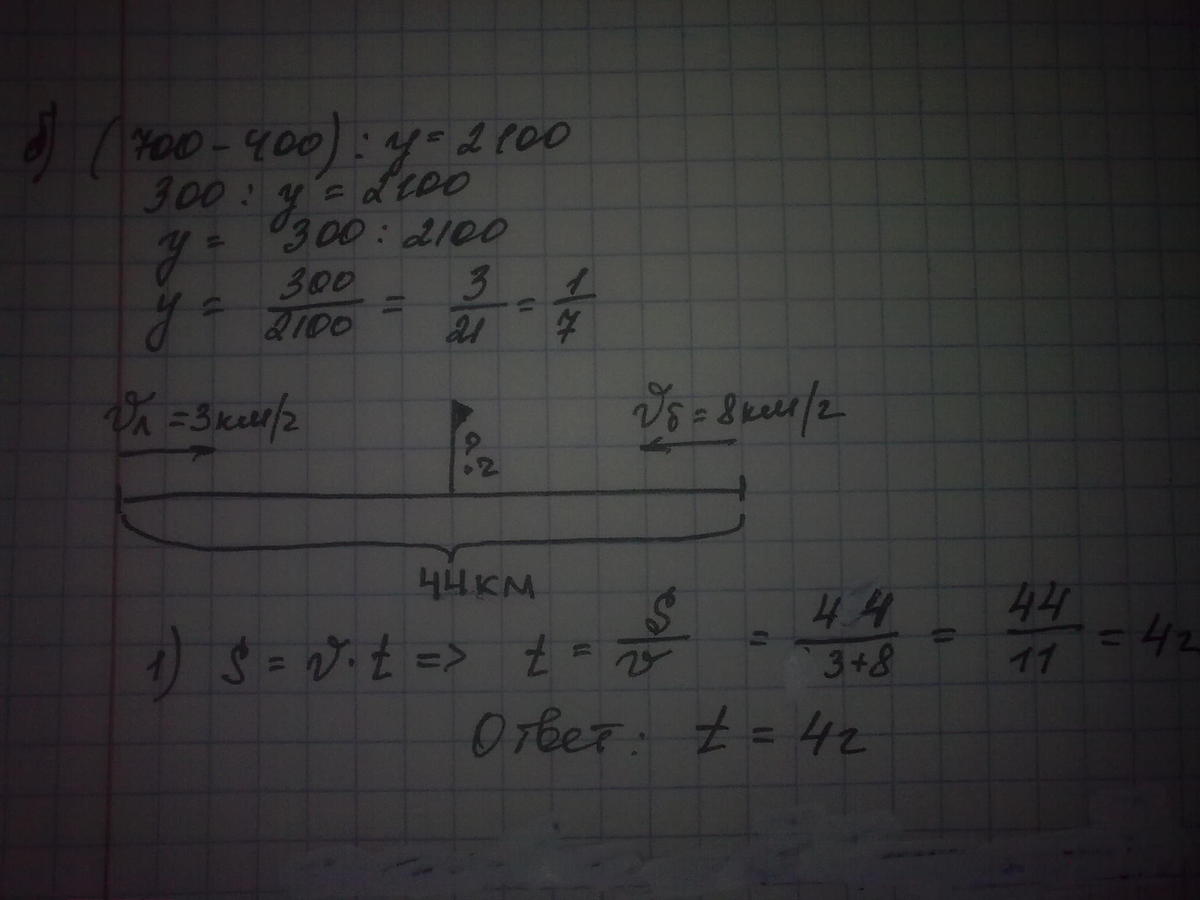 б) (700 - 400) : y = 2100
300 : y = 2100
y = 300 : 2100
y = 300/2100 = 3/21 = 1/7
Vл = 3км/г
Vб = 8км/г
? г
44 км
1) S = V · t => t = S/V = 44/(3+8) = 44/11 = 4г
Ответ: t = 4г